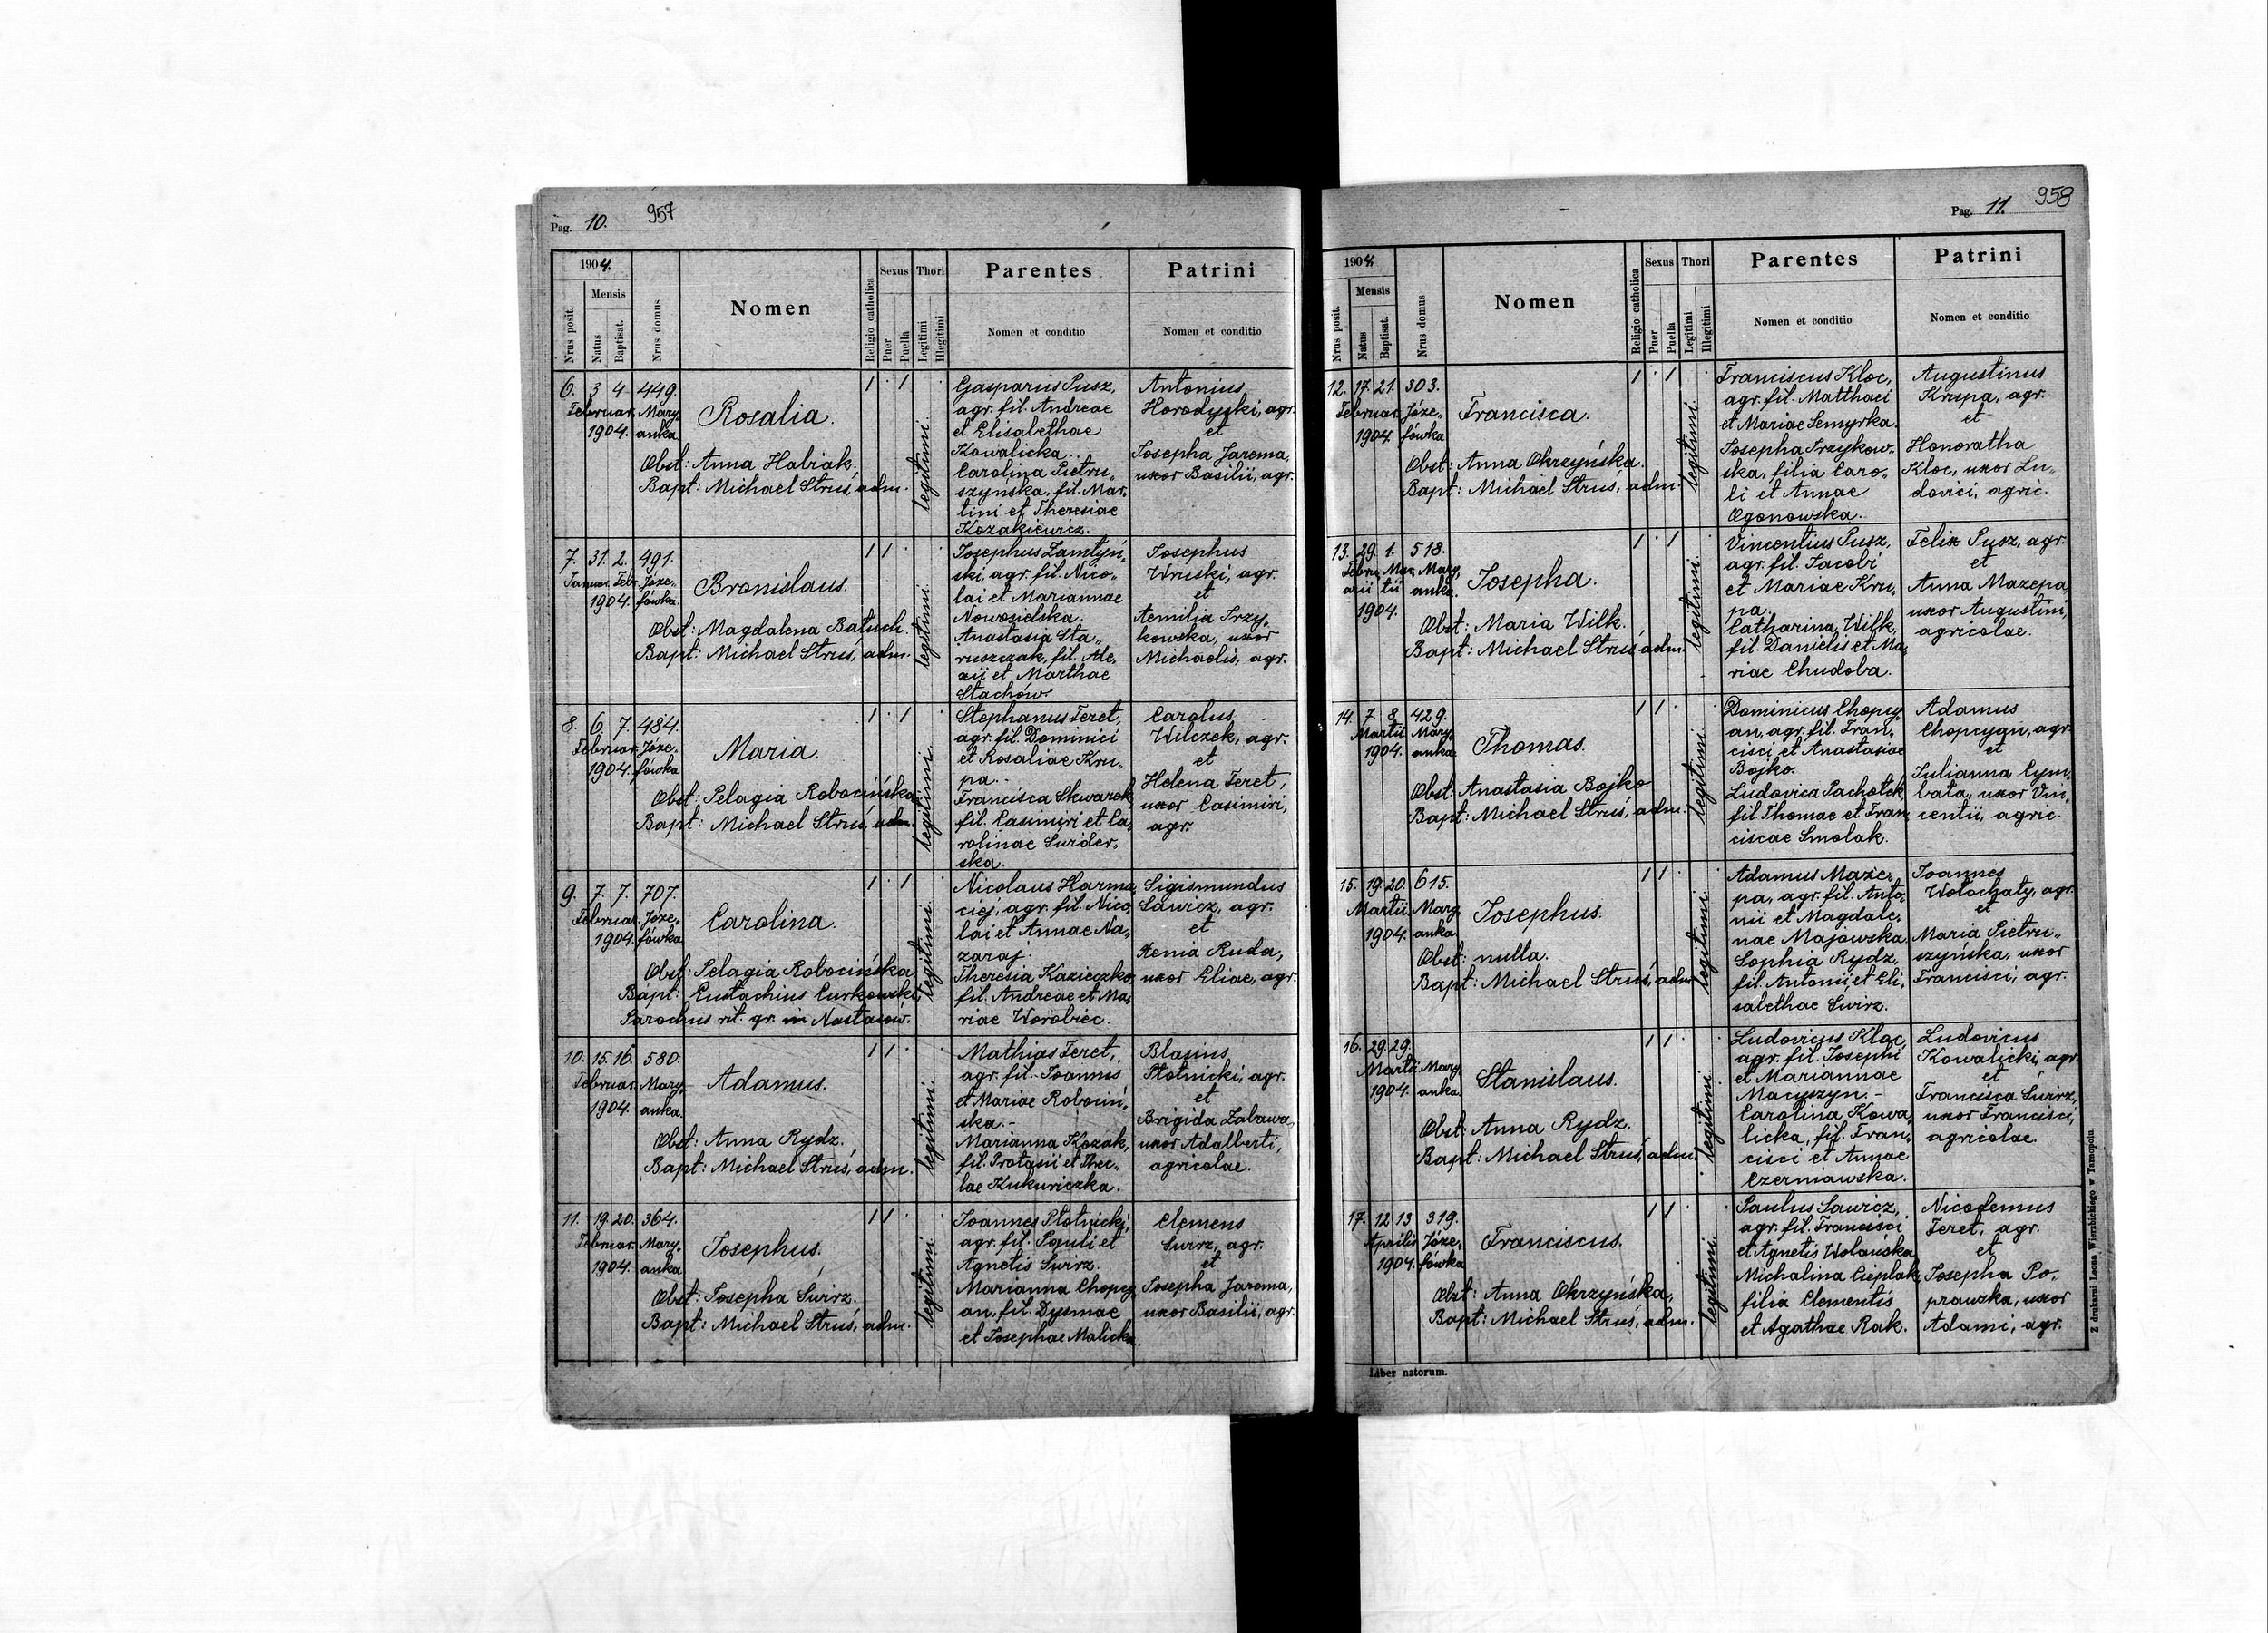 Pag. 10. 957
1904.
Nrus posit.
Mensis
Natus
Baptisat.
Nrus domus
Nomen
Religio catholica
Sexus
Puer
Puella
Thori
Legitimi
Illegitimi
Parentes
Nomen et conditio
Patrini
Nomen et conditio
6. 3 4. 449.
Februar. Mary-
1904. anka
Rosalia.
Obst: Anna Habiak.
Bapt: Michael Struś, adm.
legitimi.
Gasparus Pusz,
agr. fil. Andreae
et Elisabethae
Kowalicka.
Carolina Pietru-
szyńska, fil. Mar-
tini et Theresiae
Kozakiewicz.
Antonius
Horodyski, agr.
et
Josepha Jarema,
uxor Basilii, agr.
7. 31. 2. 491.
Januar. Febr. Józe-
1904. fówka.
Bronislaus.
Obst: Magdalena Batuch.
Bapt: Michael Struś, adm.
legitimi.
Josephus Zamłyń-
ski, agr. fil. Nico-
lai et Mariannae
Nowosielska.
Anastasia Sta-
ruszczak, fil. Ale-
xii et Marthae
Stachów.
Josephus
Wruski, agr.
et
Aemilia Trzy-
kowska, uxor
Michaelis, agr.
8. 6. 7. 484.
Februar. Józe-
1904. fówka
Maria.
Obst: Pelagia Robocińska
Bapt: Michael Struś, adm.
legitimi.
Stephanus Teret,
agr. fil. Dominici
et Rosaliae Kru-
pa.
Francisca Skwarek
fil. Casimiri et Ca-
rolinae Świder-
ska.
Carolus
Wilczek, agr.
et
Helena Teret,
uxor Casimiri,
agr.
9. 7. 7. 707.
Februar. Józe-
1904. fówka
Carolina.
Obst: Pelagia Robocińska
Bapt: Eustachius Curkowski,
Parochus rit. gr. in Nastasów.
legitimi.
Nicolaus Harma-
ciej, agr. fil. Nico-
lai et Annae Na-
zaraj.
Theresia Kazieczko
fil. Andreae et Ma-
riae Worobiec.
Sigismundus
Sawicz, agr.
et
Xenia Ruda,
uxor Eliae, agr.
10. 15. 16. 580.
Februar. Mary-
1904. anka.
Adamus.
Obst: Anna Rydz.
Bapt: Michael Struś, adm.
legitimi.
Mathias Teret,
agr. fil. Joannis
et Mariae Robociń-
ska.
Marianna Kozak,
fil. Protasii et Thec-
lae Kukuriczka.
Blasius
Płotnicki, agr.
et
Brigida Zabawa,
uxor Adalberti,
agricolae.
11. 19. 20. 364.
Februar. Mary-
1904. anka
Josephus.
Obst: Josepha Świrz.
Bapt: Michael Struś, adm.
legitimi.
Joannes Płotnicki,
agr. fil. Pauli et
Agnetis Świrz.
Marianna Chopcy-
an, fil. Dysmae
et Josephae Malicka.
Clemens
Świrz, agr.
et
Josepha Jaroma,
uxor Basilii, agr.
Pag. 11. 958
1904
Nrus posit.
Mensis
Natus
Baptisat.
Nrus domus
Nomen
Religio catholica
Sexus
Puer
Puella
Thori
Legitimi
Illegitimi
Parentes
Nomen et conditio
Patrini
Nomen et conditio
12. 17. 21. 303.
Februar. Józe-
1904. fówka
Francisca.
Obst: Anna Okrzyńska.
Bapt: Michael Struś, adm.
legitimi.
Franciscus Kloc,
agr. fil. Matthaei
et Mariae Semyrka.
Josepha Trzykow-
ska, filia Caro-
li et Annae
Ogonowska.
Augustinus
Krupa, agr.
et
Honoratha
Kloc, uxor Lu-
dovici, agric.
13. 29. 1. 518.
Febru- Mar- Mary-
arii tii anka.
1904.
Josepha.
Obst: Maria Wilk.
Bapt: Michael Struś adm.
legitimi.
Vincentius Pusz,
agr. fil. Jacobi
et Mariae Kru-
pa.
Catharina Wilk,
fil. Danielis et Ma-
riae Chudoba.
Felix Pusz, agr.
et
Anna Mazepa,
uxor Augustini,
agricolae.
14. 7. 8. 429.
Martii Mary-
1904. anka.
Thomas.
Obst: Anastasia Bojko.
Bapt: Michael Struś, adm.
legitimi.
Dominicus Chopcy-
an, agr. fil. Fran-
cisci et Anastasiae
Bojko.
Ludovica Pachołek,
fil. Thomae et Fran-
ciscae Smolak.
Adamus
Chopcyan, agr.
et
Julianna Cym-
bata, uxor Vin-
centii, agric.
15. 19. 20. 615.
Martii Mary-
1904. anka
Josephus.
Obst: nulla.
Bapt: Michael Struś, adm.
legitimi.
Adamus Maze-
pa, agr. fil. Anto-
nii et Magdale-
nae Majowska.
Sophia Rydz,
fil. Antonii et Eli-
sabethae Świrz.
Joannes
Wołochaty, agr.
et
Maria Pietru-
szyńska, uxor
Francisci, agr.
16. 29. 29.
Martii Mary-
1904. anka.
Stanislaus.
Obst: Anna Rydz.
Bapt: Michael Struś, adm.
legitimi.
Ludovicus Kloc,
agr. fil. Josephi
et Mariannae
Macyszyn. -
Carolina Kowa-
licka, fil. Fran-
cisci et Annae
Czerniawska.
Ludovicus
Kowalicki, agr.
et
Francisca Świrz,
uxor Francisci,
agricolae.
17. 12 13 319.
Aprilis Józe-
1904. fówka
Franciscus.
Obst: Anna Okrzyńska,
Bapt: Michael Struś, adm.
legitimi.
Paulus Sawicz,
agr. fil. Francisci
et Agnetis Wolańska
Michalina Cieplak,
filia Clementis
et Agathae Rak.
Nicodemus
Teret, agr.
et
Josepha Po-
prawzka, uxor
Adami, agr.
Liber natorum.
Z drukarni Leona Wierzbickiego w Tarnopolu.